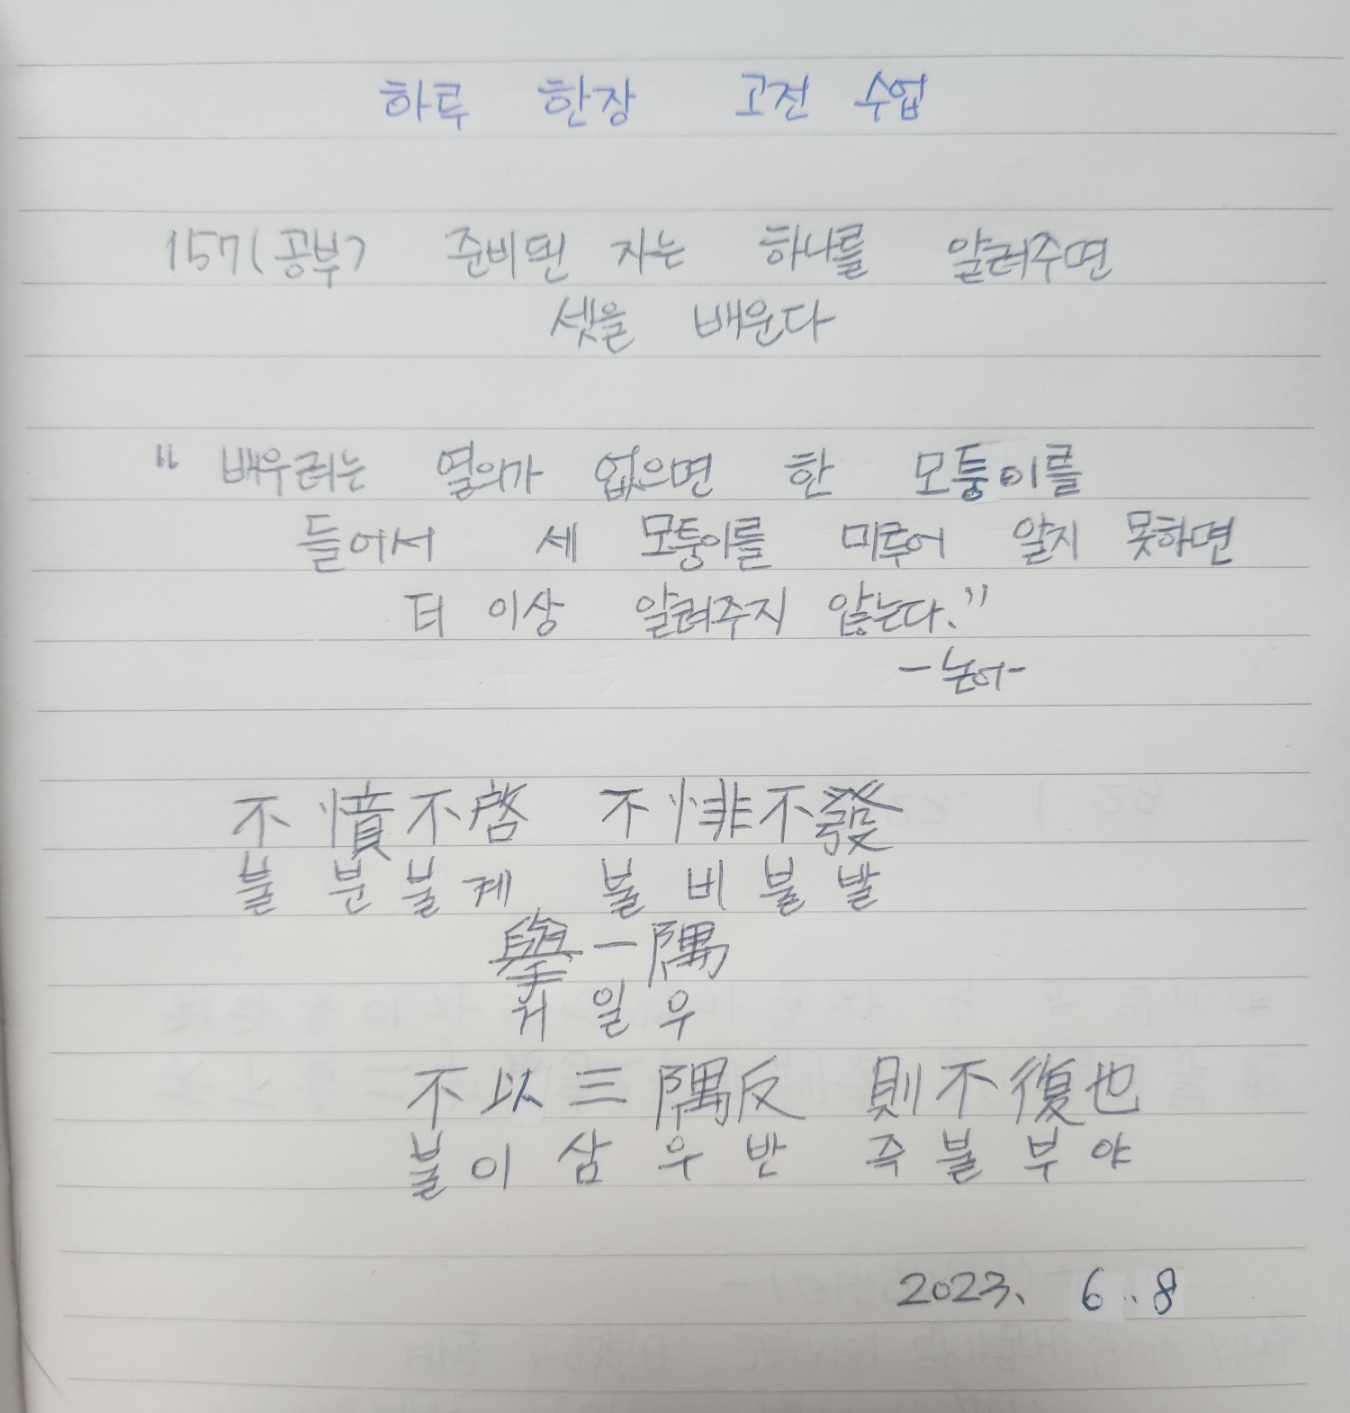 하루 한장 고전 수업
157(공부) 준비된 자는 하나를 알려주면
셋을 배운다
"배우려는 열의가 없으면 한 모퉁이를
들어서 세 모퉁이를 미루어 알지 못하면
더 이상 알려주지 않는다."
-논어-
不憤不啓 不悱不發
불분불계 불비불발
擧一隅
거일우
不以三隅反 則不復也
불이삼우반 즉불부야
2023. 6..8